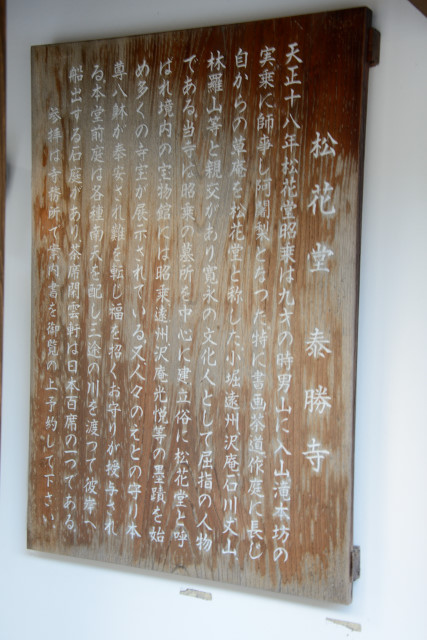 松花堂 泰勝寺
天正十八年松花堂昭乗は九才の時男山に入山滝本坊の
実乗に師事し阿闍梨となった特に書画茶道作庭に長じ
自からの草庵を松花堂と称した小堀遠州沢庵石川丈山
林羅山等と親交があり寛永の文化人として屈指の人物
である当寺は昭乗の墓所を中心に建立俗に松花堂と呼
ばれ境内の宝物館には昭乗遠州沢庵光悦等の墨蹟を始
め多くの寺宝が展示されている又人々のえとの守り本
尊八躰が奉安され難を転じ福を招くお守りが授与され
る本堂前庭は各種南天を配し三途の川を渡つて彼岸へ
船出する石庭があり茶席閑雲軒は日本百席の一つである
参拝は寺務所で案内書を御覧の上予約して下さい